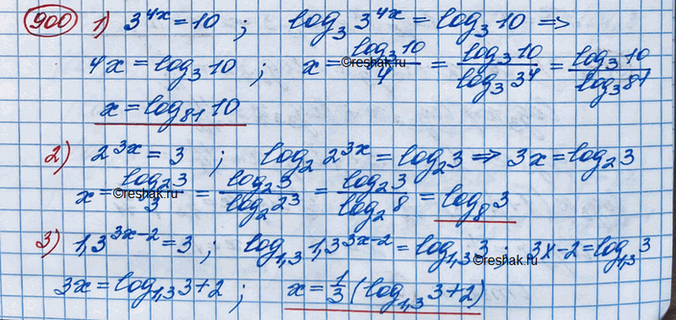 900 1) 3^{4x} = 10 ; log_3 3^{4x} = log_3 10 ⇒
4x = log_3 10 ; x = \frac{log_3 10}{4} = \frac{log_3 10}{log_3 3^4} = \frac{log_3 10}{log_3 81}
©reshak.ru
x = log_{81} 10
2) 2^{3x} = 3 ; log_2 2^{3x} = log_2 3 ⇒ 3x = log_2 3
x = \frac{log_2 3}{3} = \frac{log_2 3}{log_2 2^3} = \frac{log_2 3}{log_2 8} = log_8 3
©reshak.ru
3) 1,3^{3x-2} = 3 ; log_{1,3} 1,3^{3x-2} = log_{1,3} 3 ; 3x-2 = log_{1,3} 3
©reshak.ru
3x = log_{1,3} 3+2 ; x = \frac{1}{3} (log_{1,3} 3+2)